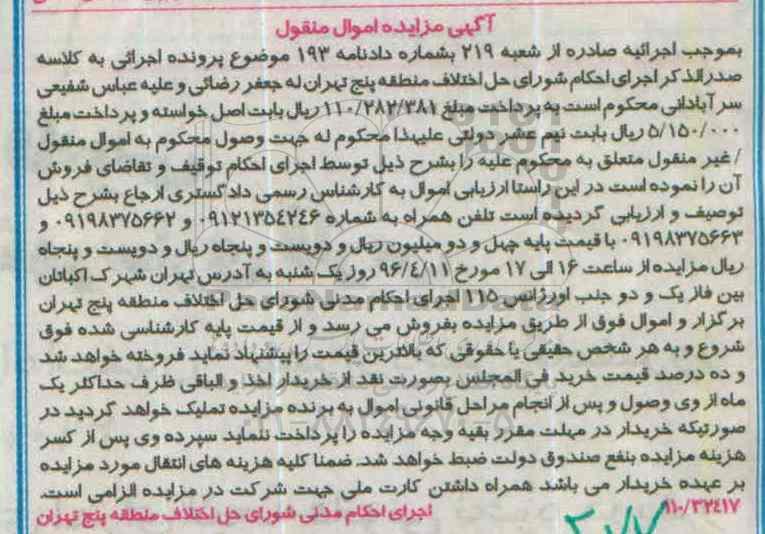 آگهی مزایده اموال منقول
بموجب اجرائیه صادره از شعبه ۲۱۹ بشماره دادنامه ۱۹۳ موضوع پرونده اجرائی به کلاسه
صدرالذکر اجرای احکام شورای حل اختلاف منطقه پنج تهران له جعفر رضائی و علیه عباس شفیعی
سرآبادانی محکوم است به پرداخت مبلغ ۱۱۰/۲۸۲/۳۸۱ ریال بابت اصل خواسته و پرداخت مبلغ
۵/۱۵۰/۰۰۰ ریال بابت نیم عشر دولتی علیهذا محکوم له جهت وصول محکوم به اموال منقول
/غیر منقول متعلق به محکوم علیه را بشرح ذیل توسط اجرای احکام توقیف و تقاضای فروش
آن را نموده است در این راستا ارزیابی اموال به کارشناس رسمی دادگستری ارجاع بشرح ذیل
توصیف و ارزیابی گردیده است تلفن همراه به شماره ۰۹۱۲۱۳۵۴۲۴۶ و ۰۹۱۹۸۳۷۵۶۶۲ و
۰۹۱۹۸۳۷۵۶۶۳ با قیمت پایه چهل و دو میلیون ریال و دویست و پنجاه ریال و دویست و پنجاه
ریال مزایده از ساعت ۱۶ الی ۱۷ مورخ ۹۶/۴/۱۱ روز یک شنبه به آدرس تهران شهرک اکباتان
بین فاز یک و دو جنب اورژانس ۱۱۵ اجرای احکام مدنی شورای حل اختلاف منطقه پنج تهران
برگزار و اموال فوق از طریق مزایده بفروش می رسد و از قیمت پایه کارشناسی شده فوق
شروع و به هر شخص حقیقی یا حقوقی که بالاترین قیمت را پیشنهاد نماید فروخته خواهد شد
و ده درصد قیمت خرید فی المجلس بصورت نقد از خریدار اخذ و الباقی ظرف حداکثر یک
ماه از وی وصول و پس از انجام مراحل قانونی اموال به برنده مزایده تملیک خواهد گردید در
صورتیکه خریدار در مهلت مقرر بقیه وجه مزایده را پرداخت ننماید سپرده وی پس از کسر
هزینه مزایده بنفع صندوق دولت ضبط خواهد شد. ضمنا کلیه هزینه های انتقال مورد مزایده
بر عهده خریدار می باشد همراه داشتن کارت ملی جهت شرکت در مزایده الزامی است.
۱۱۰/۳۲۴۱۷ اجرای احکام مدنی شورای حل اختلاف منطقه پنج تهران